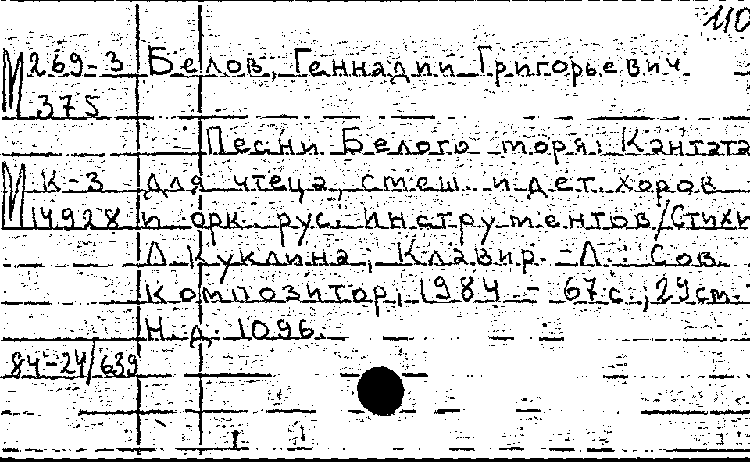 110
М 269-3 Белов, Геннадий Григорьевич
375
Песни Белого моря: Кантата
М К-3 для чтеца, смеш. и дет. хоров
14928 и орк. рус. инструментов/Стихи
Л. Куклина, Клавир. - Л.: Сов.
композитор, 1984. - 67с., 29см.
Н.д. 1096.
84-24/639